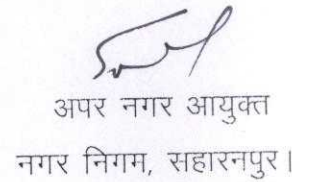 अपर नगर आयुक्त
नगर निगम, सहारनपुर।